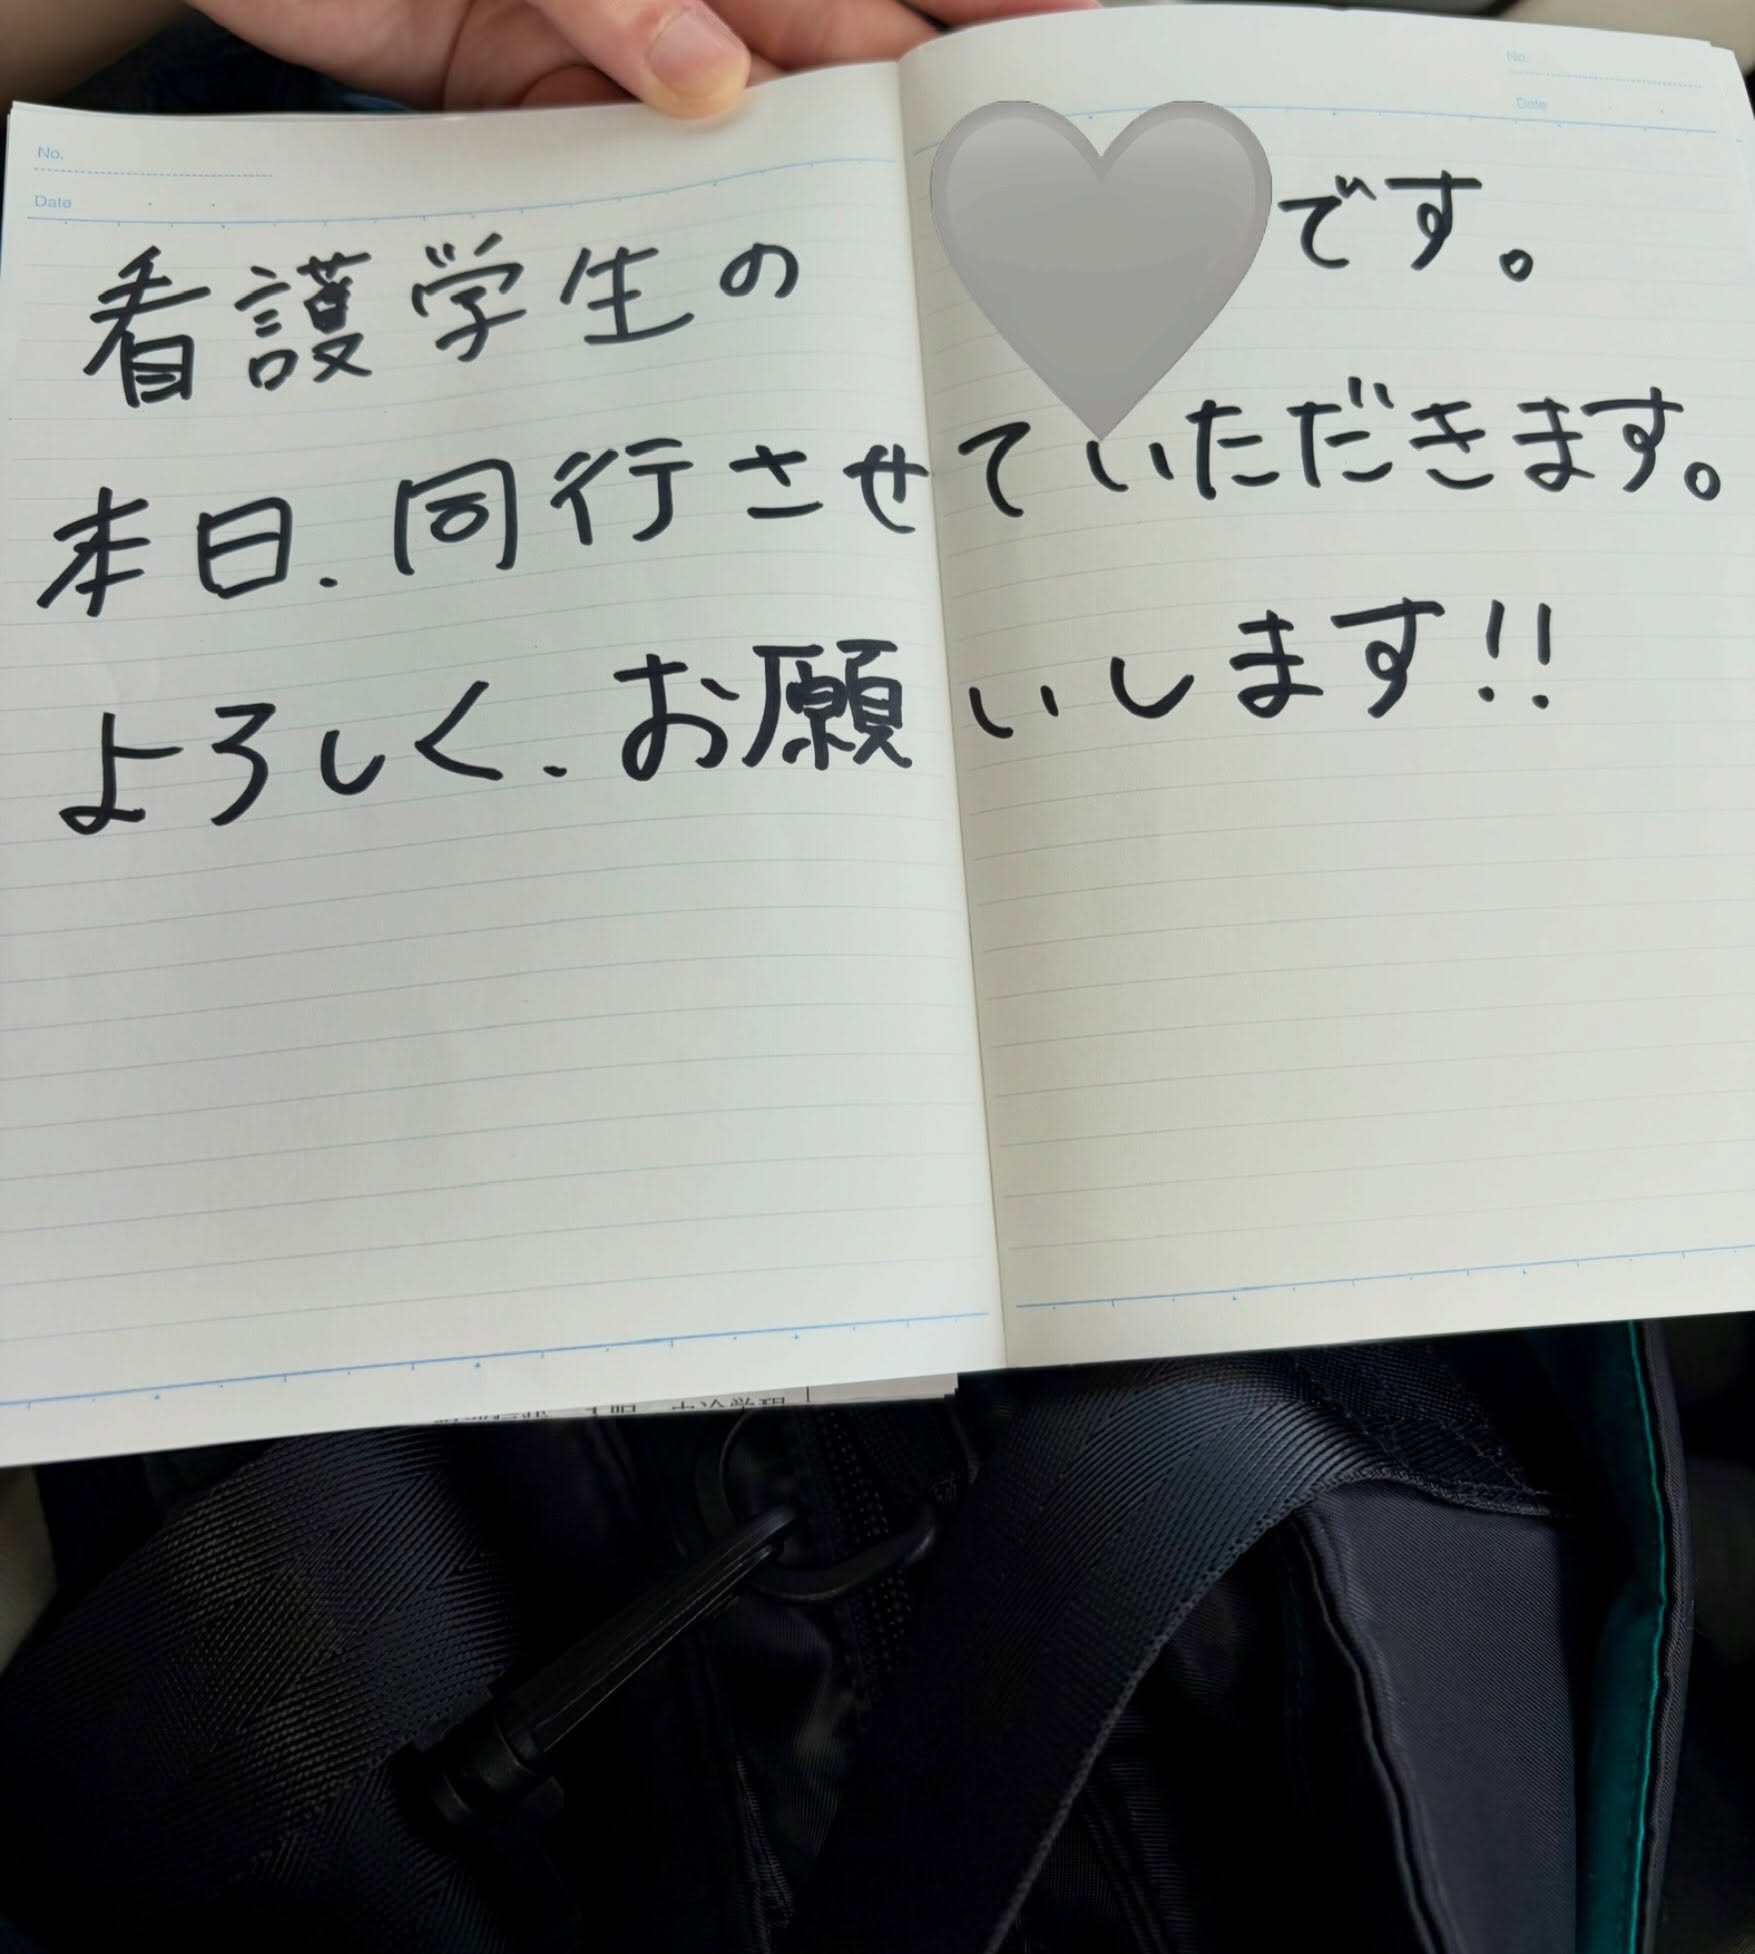 No.
Date
No.
Date
看護学生の です。
本日、同行させていただきます。
よろしく、お願いします!!